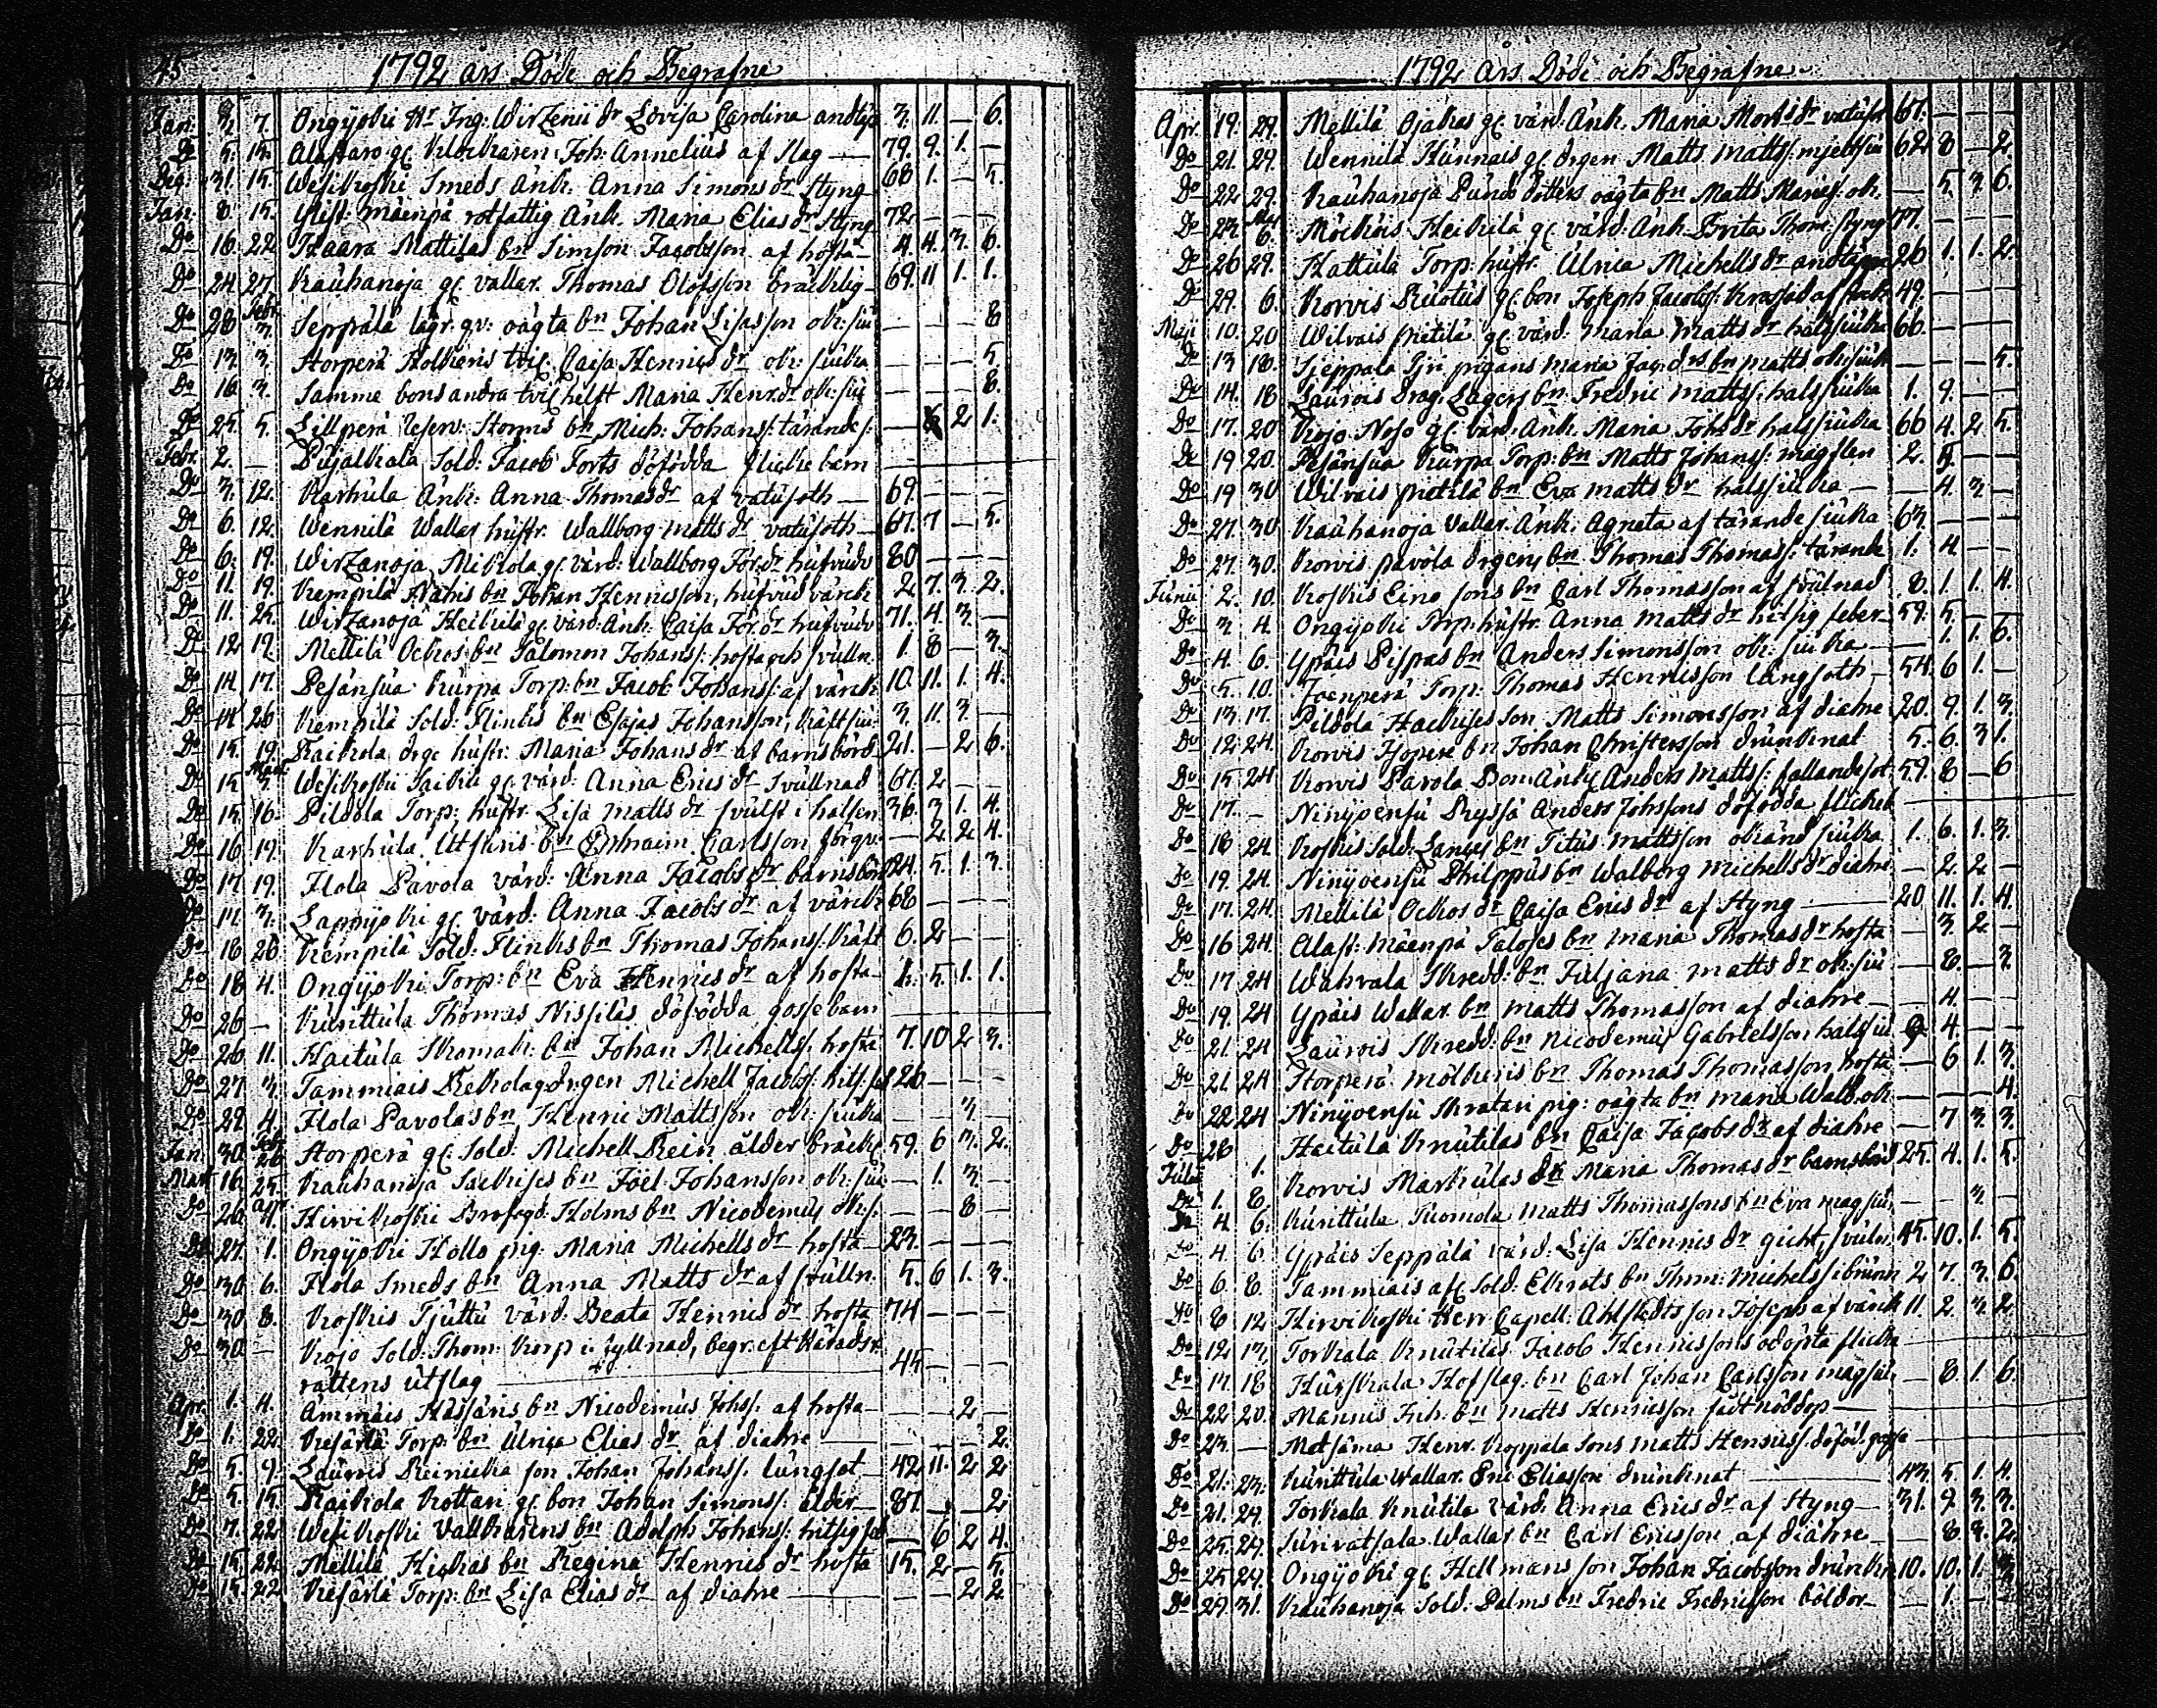 45
1792 års Döde och Begrafne
Jan: 7. Ongijoki Hr Ing: Wirzenii dr Lovisa Carolina andtäp 3. 11. — 6.
Do 5. 15. Alastaro gl. Klockaren Joh: Annelius af slag — 79. 9. 1. —
Deg: 31. 15. Wesikoski Smeds Änk. Anna Simons dr styng 68 1. — 5.
Jan: 8. 15. Mäenpä rotfattig Änk. Maria Elias dr Styng 72 — — —
Do 16. 22 Haara Mattilas bn Simson Jacobsson af hosta 4. 4. 3. 6.
Do 24. 27. Kauhanoja gl. vallar. Thomas Olofsson bräcklig 69. 11 1. 1.
Do 28 Febr. 3. Seppälä oägta bn Johan Lisasson ok: siu — — — 8
Do 13. 3. Storperä tvil. Caisa Henrics dr ok: siuka — — — 5.
Do 16. 3. Samme bons andra tvil helft Maria Henr. dr ok: siu — — — 8.
Do 25. 5. Lillperä Reserv: Storms bn Mich: Johans: tärande s: — 2 1.
Febr. 2. — Pujalkala Sold: Jacob Torts döfödda flicke barn —
Do 3. 12. Karhula Änk: Anna Thomas dr af vatusoth — 69. — — —
Do 6. 12. Wennilä Wallar. hustr. Wallborg Matts dr vatusoth 67. 7 — 5.
Do 6. 19. Wirzanoja Mikola gl. värd: Wallborg Jör. dr hufvudv 80 — — —
Do 11. 19. Kempilä bn Johan Henricsson, hufvud värck 2. 7. 3. 2.
Do 11. 25. Wirzanoja Heikilä gl. värd: Änk: Caisa Jör. dr hufvudv 71. 4. 3. —
Do 12 19. Mellilä Ockos bn Salomon Johans: hosta och svulln. 1. 8 — 3.
Do 14 17. Pesänsua Kurpa Torp: bn Jacob Johans: af värck 10. 11. 1. 4.
Do 14 26 Kempilä Sold: Flinks bn Esajas Johansson, Kättsiu 3. 11 3. —
Do 15. 19. Raikola drgs hustr: Maria Johans dr af barnsbörd 21. — 2 6.
Do 15 Mart: 3. Wesikoski Saikii gl. värd: Anna Erics dr Svullnad 67. 2 — —
Do 15. 16. Pildola Torp: hustr. Lisa Matts dr svulst i halsen 36. 3 1. 4.
Do 16 19. Karhula Utsuris bn Ephraim Carlsson förgv. — 2 2 4.
Do 17. 19. Ilola Pavola värd: Anna Jacobs dr barnsbörd 24. 5. 1. 3.
Do 17. 3. Lamyoki gl. värd: Anna Jacobs dr af värck 68 — — —
Do 18 26. Kempilä Sold: Flinks bn Thomas Johans: Kätt 6. 2 — —
Do 18 4. Ongijoki Torp: bn Eva Henrics dr af hosta 5. 1. 1.
Do 26 — Kunttula Thomas Nissilas döfödda gosse barn —
Do 26 11. Haitula Skomak: bn Johan Michells: hosta 7. 10 2 3.
Do 27 3. Tammiais drgen Michell Jacobs: hits: feb 26. — — —
Do 29 4. Ilola Pavolas bn Henric Mattsson ok: siuka — — 3. —
Jan: 30. Febr 26 Storperä gl. Sold: Michell Rein ålder bräckl: 59. 6 3. 2.
Mart 16. 25. Kauhanoja Sackises bn Joel Johansson ok: siu — 1. 3. —
Do 26. Apr Hirvikoski Holms bn Nicodemus ok: — — 8 —
Do 27. 1. Ongijoki Hollo pig: Maria Michells dr hosta 23. — — —
Do 30. 6. Ilola Smeds bn Anna Matts dr af svulln. 5. 6 1. 3.
Do 30 8. Koskis Tjuttu värd: Beata Henrics dr hosta 74 — — —
Do 30 — Kojo Sold: Thom: Korp i fyllnad, begr. eft Häradsr.
rättens utslag — 45 — — —
Apr. 1. 4. Ammäis Hässäris bn Nicodemus Johs: af hosta — — 2 —
Do 1. 22 Kesärlä Torp: bn Ulrica Elias dr af diahre — — — 2.
Do 5. 9. Laurois Reinicka son Johan Johans: lungsot 42 11. 2 2
Do 5. 15. Raikola Kottari gl. bon Johan Simons: ålder 87. — — 2
Do 7. 22. Wesikoski Vallkarens bn Adolph Johans: hitsig feb — 6 2 4.
Do 15. 22. Mellilä bn Regina Henrics dr hosta 15. 2 — 5.
Do 15. 22. Kesärlä Torp: bn Lisa Elias dr af diahre — — 2 2
1792 Års Döde och Begrafne
Apr. 19. 29. Mellilä Ojakas gl. värd. Änk. Maria dr vatusot 67. — — —
Do 21. 29. Wennilä Hunnais gl. drgen Matts Matts: mjeltsiu 62 8 — 2.
Do 22 29. Kauhanoja dotters oägta bn Matts Marias: ok. — 5. 3. 6.
Do 23 Maj 6. Möckäis Heikilä gl. värd. Änk. Brita Thom: styng 77. — — —
Do 26 29. Hattula Torp: hustr. Ulrica Michells dr andtäppa 26 1. 1. 2.
Do 29. 6. Korvis Ruotus gl. bon Joseph Jacobs: 49. — — —
Maji 10. 20 Wilvais Prietilä gl. värd: Maria Matts dr halssiuka 66 — — —
Do 13 18. pigans Maria Jac: drs bn Matts ok: siuka — — — 5.
Do 14. 18 Laurois Drag: Lagers bn Fredric Matts: halssiuka 1. 9. — —
Do 17. 20 Kojo Noso gl. värd. Änk. Maria Johs dr halssiuka 66 4. 2 5.
Do 19 20. Pesänsua Kurpa Torp: bn Matts Johans: magflen 2. — —
Do 19 30 Wilvais Prietilä bn Eva Matts dr halssiuka — 4. 3. —
Do 27. 30 Kauhanoja Vallar. Änk. Agneta af tärande siuka 63. — — —
Do 27. 30. Korvis Pavola drgens bn Thomas Thomas: tärande 1. 4. — —
Junii 2. 10. Koskis Eino sons bn Carl Thomasson af svulnad 8. 1. 1. 4.
Do 3. 4. Ongijoki Torp: hustr. Anna Matts dr hitsig feber 59. 5. — —
Do 4. 6. Ypäis Pispas bn Anders Simonsson ok: siuka — 1. 1. 6.
Do 5. 10. Joenperä Torp: Thomas Henricsson lungsoth 54 6 1. —
Do 13. 17. Pildola Hackises son Matts Simonsson af diahre 20. 9. 1. 3.
Do 12 24. Korvis bn Johan Christersson drunknat 5. 6. 3 1.
Do 15 24 Korvis Pavola Anders Matts: fallandesot 59. 8 — 6
Do 17. — Ninijoensu Anders Johssons döfödda flickeb. —
Do 18 24. Koskis Sold: bn Titus Mattsson okänd siuka 1. 6. 1. 3.
Do 19. 24. Ninijoensu Philppus bn Walborg Michells dr diahre — 2. 2. —
Do 17. 24. Mellilä Ockos dr Caisa Erics dr af styng — 20 11. 1. 4.
Do 16 24. Alast: Mäenpä bn Maria Thomas dr hosta — 3. 2 —
Do 17 24 Wahvala Skredd: bn Juljana Matts dr ok: siu — 8. — 3.
Do 19. 24 Ypäis Wallar. bn Matts Thomasson af diahre — 4. — —
Do 21. 24 Laurois Skredd: bn Nicodemus Gabrielsson halssiu 4. — —
Do 21. 24 Storperä bn Thomas Thomasson hosta — 6 1. 3.
Do 22 24 Ninijoensu Skratari pig: oägta bn Maria Walb. ok. — — — 4.
Do 28 Haitula Knutilas bn Caisa Jacobs dr af diahre — 7 3. 3.
Julii 1. Korvis Markulas Maria Thomas dr barnsbörd 25. 4. 1. 5.
Do 1. 8. Kunttula Tuomola Matts Thomassons bn Eva magsiu — — 3. —
Do 4. 6. Ypäis Seppälä värd: Lisa Henrics dr gickt, svuln. 45. 10. 1. 5.
Do 6. 8. Tammiais Sold: bn Thom: Michelss: 2 7. 3. 6.
Do 8 12 Hirvikoski Herr Capell: Ahlstedts son Joseph af värck 11. 2. 3. 2
Do 12 13. Torkala Knutilas Jacob Henricssons odöpta flicka —
Do 17 18 Hurskala Hofslag: bn Carl Johan Carlsson magsiu — 8. 1. 6.
Do 22 20. Mannis Inh. bn Matts Henricsson fådt nöddop —
Do 23. — Motsäma Henr. Koppala sons Matts Henrics: döföd. gosse —
Do 21. 23. Kunttula Wallar. Eric Eliasson drunknat — 43. 5. 1. 4.
Do 21. 29. Torkala Knutila värd. Anna Erics dr af styng 31. 9. 3. 3.
Do 25. 29. Wallar bn Carl Ericsson af diahre — 8. 2.
Do 25 29. Ongijoki gl. Hellmans son Johan Jacobsson drunkn. 10. 10. 1. 3.
Do 29. 31. Kauhanoja Sold: Palms bn Fredric Fredricsson böldor — 1. — —